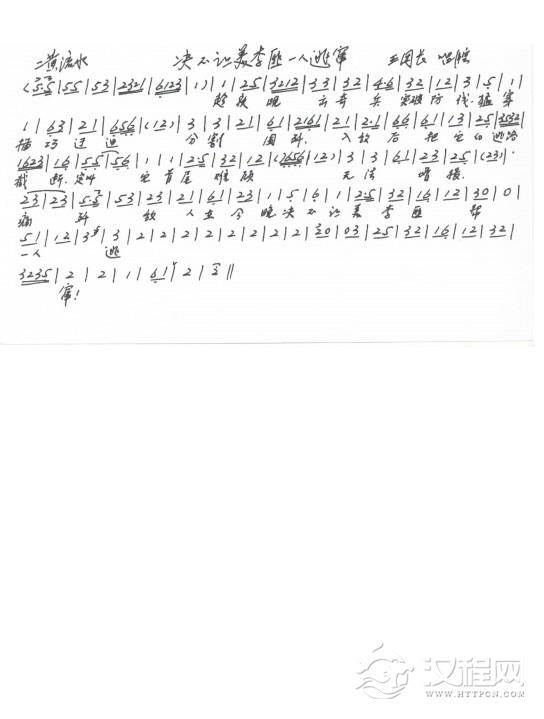 二黄流水 决不让美李匪一人逃窜 王团长 唱腔
(5·5|55|53|2321|6123|1)|1|25|3212|33|32|4·6|32|12|3|5|1|
趁夜晚 出奇兵 突破防线·猛穿
1|63|21|656|(12)|3|3|21|61|2161|21|2·1|66|61|13|25|3532|
插 巧迂迴 分割围歼,入敌后把它的逃路
1623|16|55|56|1|1|25|32|12|(7656|12)|3|3|61|23|25|(231)·
截断.定叫它首尾难顾 无法增援.
23|23|5·5|53|23|21|61|23|1|5|6|1|25|32|16|12|30|0|
痛歼敌人在今晚决不让美李匪帮
51|12|3|3|2|2|2|2|2|2|2|2|30|03|25|32|16|12|32|
一人 逃
3235|2|2|1|61|2|2‖
窜!
汉程网
WWW.HTTPCN.COM